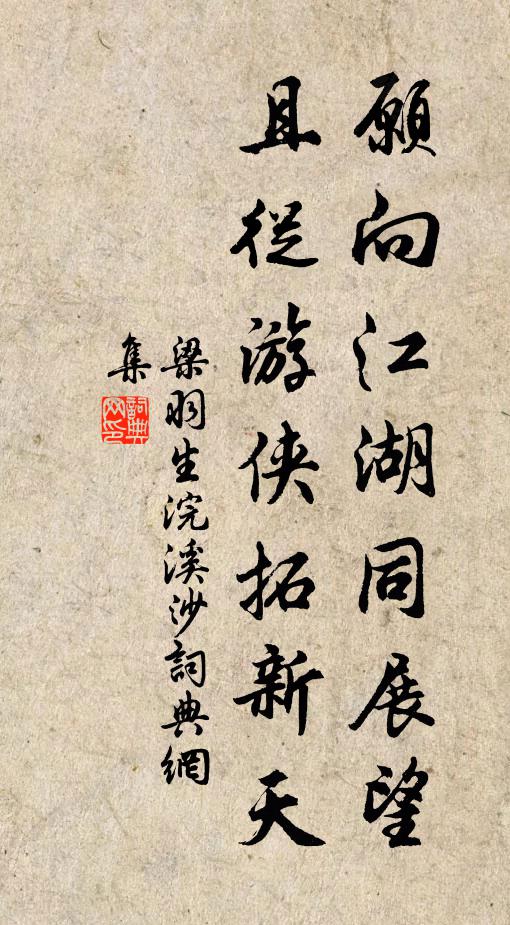 願向江湖同展望
且從游俠拓新天
梁羽生浣溪沙詞典網
集
詞典網印